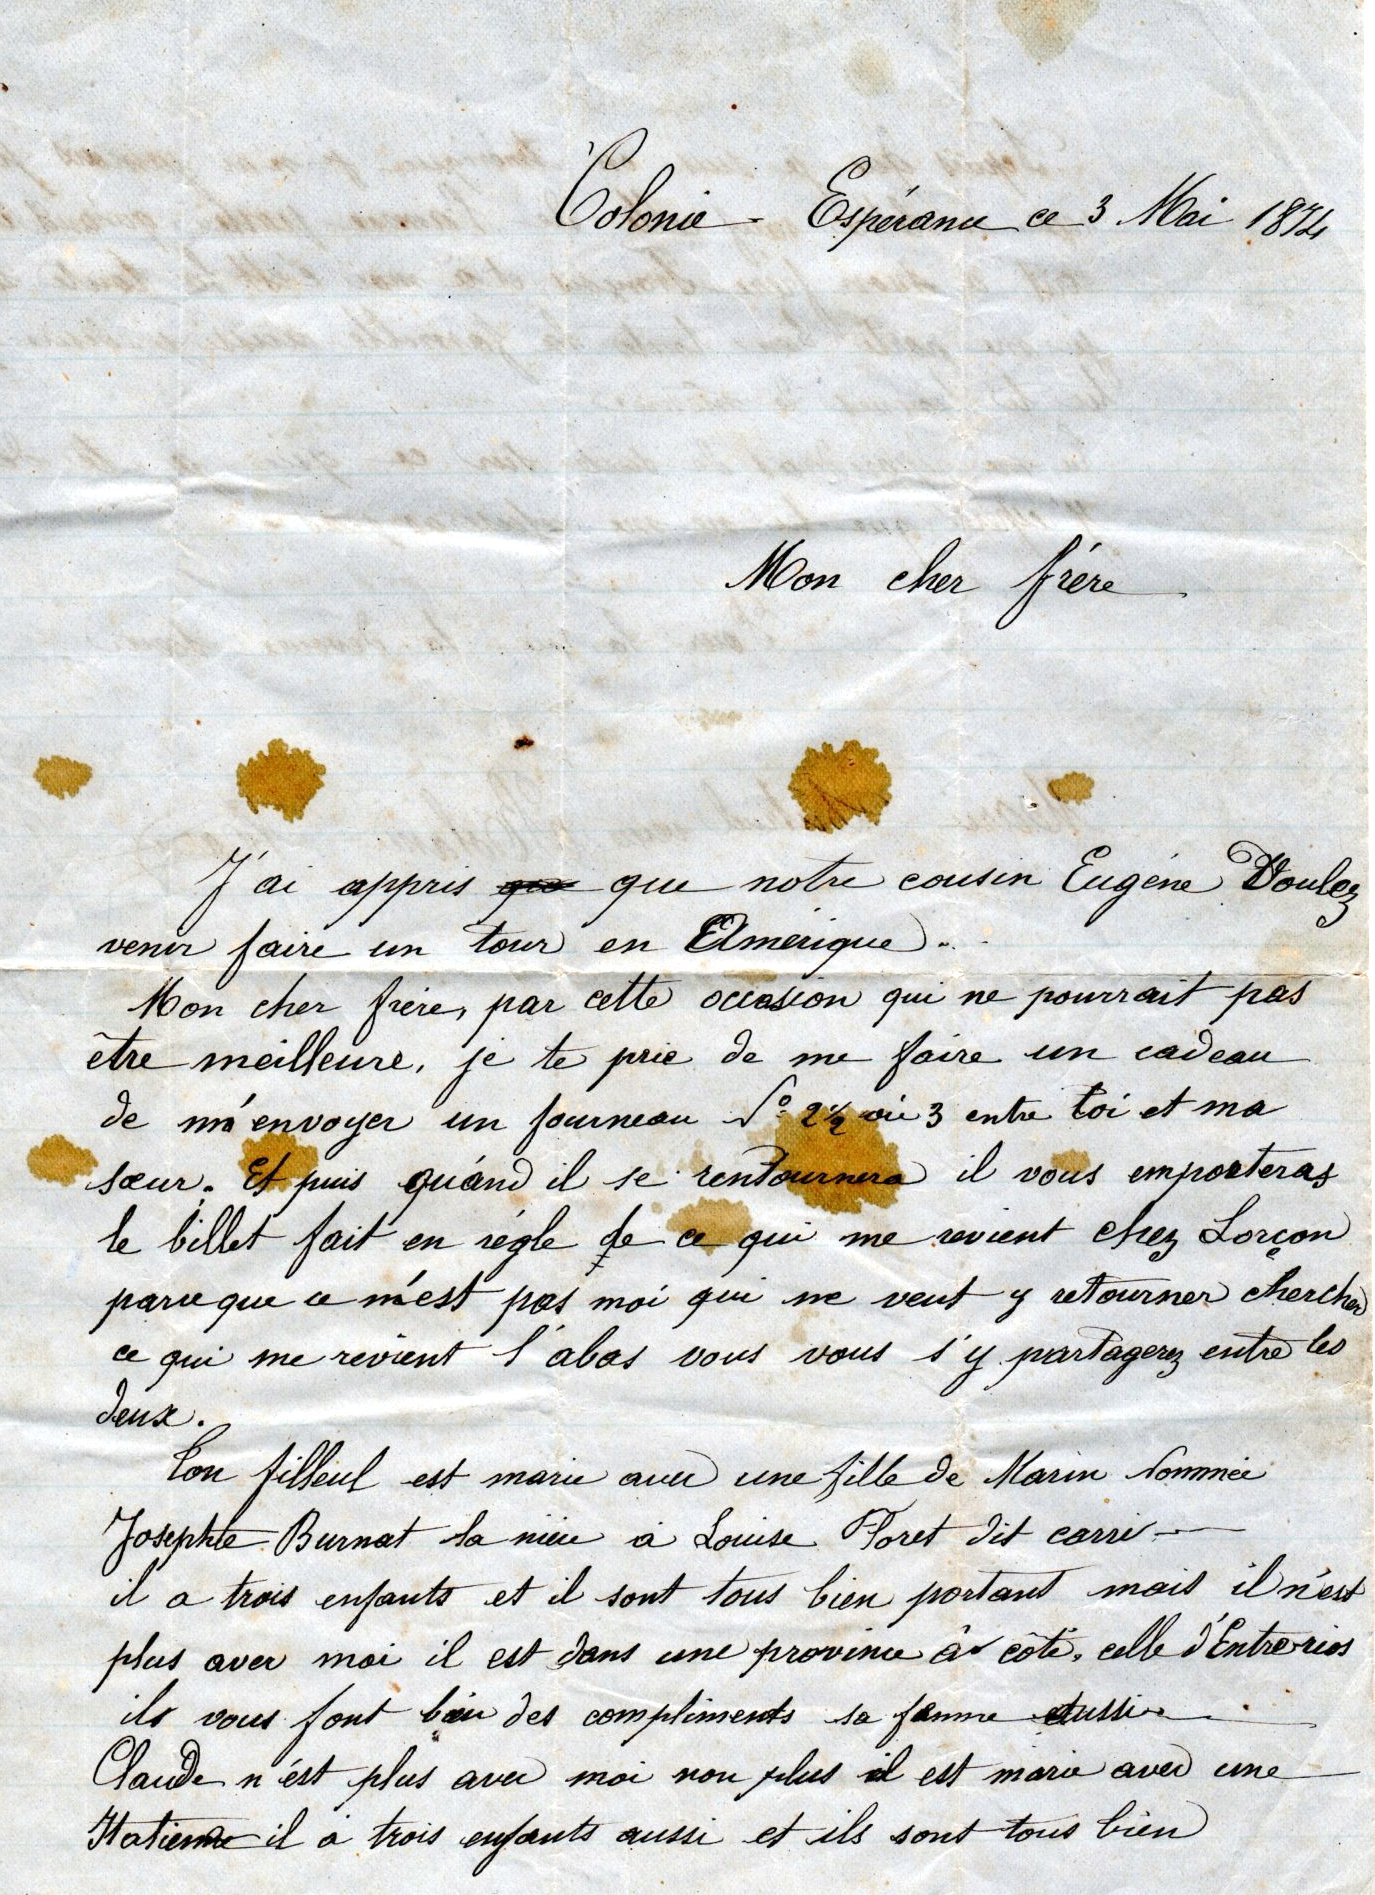 Colonie - Espérance ce 3 Mai 1874
Mon cher frére
J'ai appris que notre cousin Eugéne Voulez
venir faire un tour en Amérique.
Mon cher frére, par cette occasion qui ne pourrait pas
être meilleure, je te prie de me faire un cadeau
de m'envoyer un fourneau No 2½ ou 3 entre toi et ma
sœur. Et puis quánd il se rentournera il vous emporteras
le billet fait en régle de ce qui me revient chez Lorçon
parce que ce n'est pas moi qui me veut y retourner chercher
ce qui me revient l'abas vous vous s'y partagerez entre les
deux.
Ton filleul est marie avec une fille de Marin Nommée
Josephte Burnat la niéce a Louise Floret dit carri
il a trois enfants et il sont tous bien portant mais il n'est
plus avec moi il est dans une province â côté, celle d'Entre-rios
ils vous font bien des compliments sa femme aussi
Claude n'ést plus avec moi non plus il est marie avec une
Italienne il a trois enfants aussi et ils sont tous bien